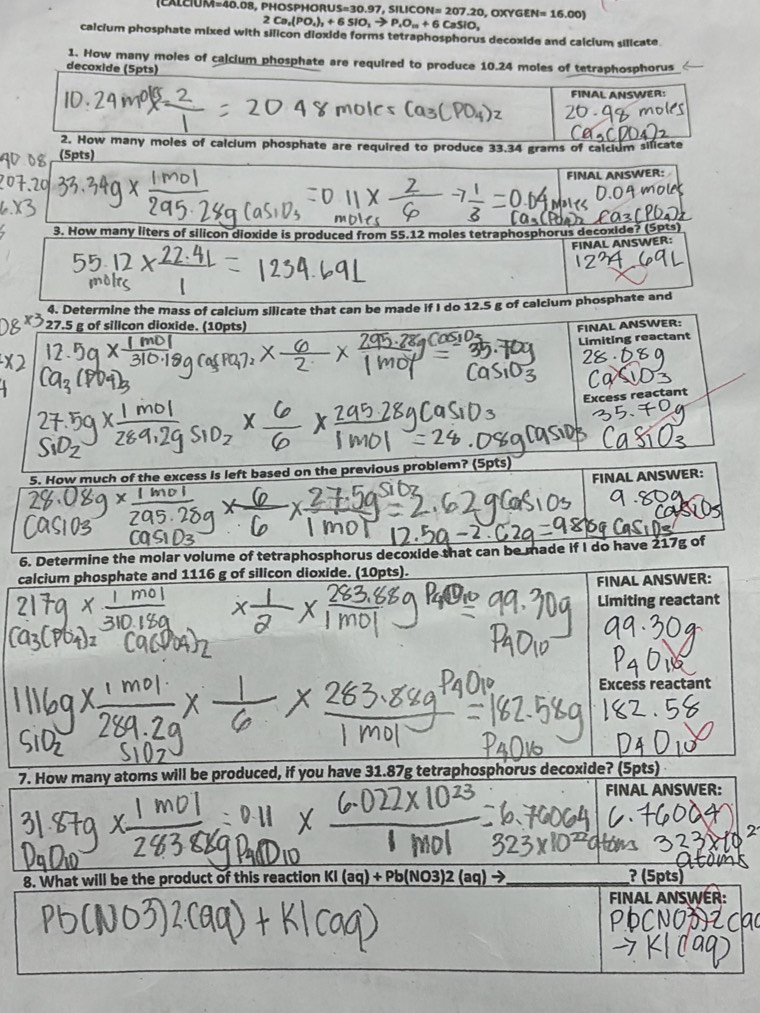 (CALCIUM=40.08, PHOSPHORUS=30.97, SILICON= 207.20, OXYGEN= 16.00)
2 Ca₃(PO₄)₂ + 6 SiO₂ → P₄O₁₀ + 6 CaSiO₃
calcium phosphate mixed with silicon dioxide forms tetraphosphorus decoxide and calcium silicate
1. How many moles of calcium phosphate are required to produce 10.24 moles of tetraphosphorus
decoxide (5pts)
10.24 moles × 2/1 = 20.48 moles Ca3(PO4)2
FINAL ANSWER:
20.48 moles
Ca3(PO4)2
2. How many moles of calcium phosphate are required to produce 33.34 grams of calcium silicate
(5pts)
40.08
207.20
33.34g × 1 mol/295.28g CaSiO3 = 0.11 moles × 2/6 → 1/3 = 0.04 moles Ca3(PO4)2
FINAL ANSWER:
0.04 moles
Ca3(PO4)2
3. How many liters of silicon dioxide is produced from 55.12 moles tetraphosphorus decoxide? (5pts)
55.12 moles × 22.4L/1 = 1234.69L
FINAL ANSWER:
1234.69L
4. Determine the mass of calcium silicate that can be made if I do 12.5 g of calcium phosphate and
27.5 g of silicon dioxide. (10pts)
12.5g Ca3(PO4)3 × 1 mol/310.18g Ca3(PO4)2 × 6/2 × 295.28g CaSiO3/1 mol = 35.70g CaSiO3
27.5g SiO2 × 1 mol/289.2g SiO2 × 6/6 × 295.28g CaSiO3/1 mol = 28.08g CaSiO3
FINAL ANSWER:
Limiting reactant
28.08g
CaSiO3
Excess reactant
35.70g
CaSiO3
5. How much of the excess is left based on the previous problem? (5pts)
28.08g CaSiO3 × 1 mol/295.28g CaSiO3 × 6/6 × 27.5g SiO2/1 mol = 2.62g CaSiO3
12.5g - 2.62g = 9.88g CaSiO3
FINAL ANSWER:
9.80g
CaSiO3
6. Determine the molar volume of tetraphosphorus decoxide that can be made if I do have 217g of
calcium phosphate and 1116 g of silicon dioxide. (10pts).
217g Ca3(PO4)2 × 1 mol/310.18g Ca(PO4)2 × 1/2 × 283.88g P4O10/1 mol = 99.30g P4O10
1116g SiO2 × 1 mol/289.2g SiO2 × 1/6 × 283.88g P4O10/1 mol = 182.58g P4O10
FINAL ANSWER:
Limiting reactant
99.30g
P4O10
Excess reactant
182.58
P4O10
7. How many atoms will be produced, if you have 31.87g tetraphosphorus decoxide? (5pts)
31.87g P4O10 × 1 mol/283.88g P4O10 = 0.11 × 6.022×10²³/1 mol = 6.76064323×10²² atoms
FINAL ANSWER:
6.76064
323×10²
atoms
8. What will be the product of this reaction KI (aq) + Pb(NO3)2 (aq) → ____________? (5pts)
Pb(NO3)2(aq) + KI(aq)
FINAL ANSWER:
Pb(NO3)2(aq
→ KI(aq)